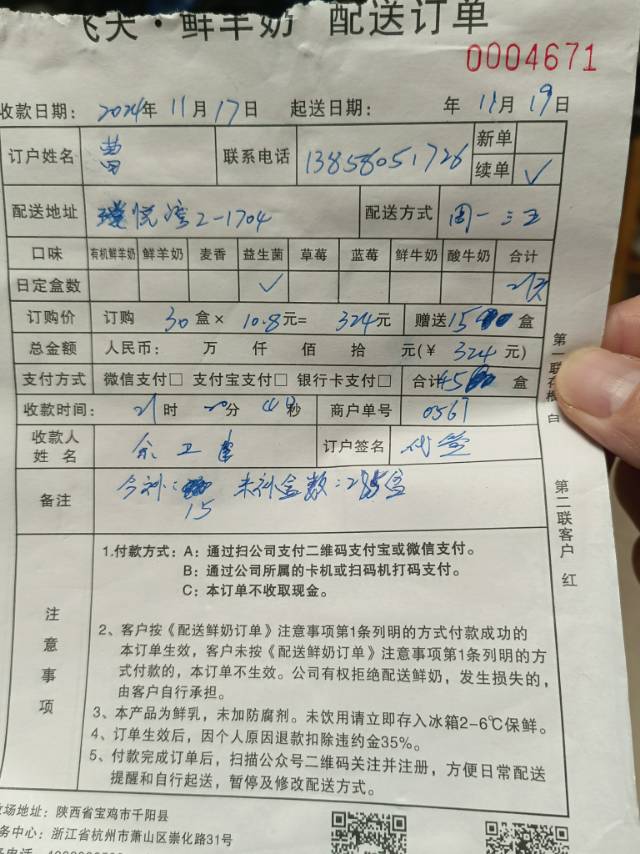 飞天·鲜羊奶 配送订单
0004671
收款日期: 2024年11月17日 起送日期: 年11月19日
订户姓名 曹 联系电话 13858051726 新单 续单 ✓
配送地址 璞悦湾2-1704 配送方式 周一三五
口味 有机鲜羊奶 鲜羊奶 麦香 益生菌 草莓 蓝莓 鲜牛奶 酸牛奶 合计
日定盒数 ✓
订购价 订购 30盒× 10.8元= 324元 赠送15盒
总金额 人民币: 万 仟 佰 拾 元(¥ 324元)
支付方式 微信支付□ 支付宝支付□ 银行卡支付□ 合计45盒
收款时间: 21时20分48秒 商户单号 0567
收款人姓名 余卫 订户签名 代签
备注 今补: 15 未补盒数:285盒
注意事项
1.付款方式: A: 通过扫公司支付二维码支付宝或微信支付。
B: 通过公司所属的卡机或扫码机打码支付。
C: 本订单不收取现金。
2、客户按《配送鲜奶订单》注意事项第1条列明的方式付款成功的
本订单生效，客户未按《配送鲜奶订单》注意事项第1条列明的方
式付款的，本订单不生效。公司有权拒绝配送鲜奶，发生损失的，
由客户自行承担。
3、本产品为鲜乳，未加防腐剂。未饮用请立即存入冰箱2-6℃保鲜。
4、订单生效后，因个人原因退款扣除违约金35%。
5、付款完成订单后，扫描公众号二维码关注并注册，方便日常配送
提醒和自行起送，暂停及修改配送方式。
第一联存根 白
第二联客户 红
牧场地址: 陕西省宝鸡市千阳县
务中心: 浙江省杭州市萧山区崇化路31号